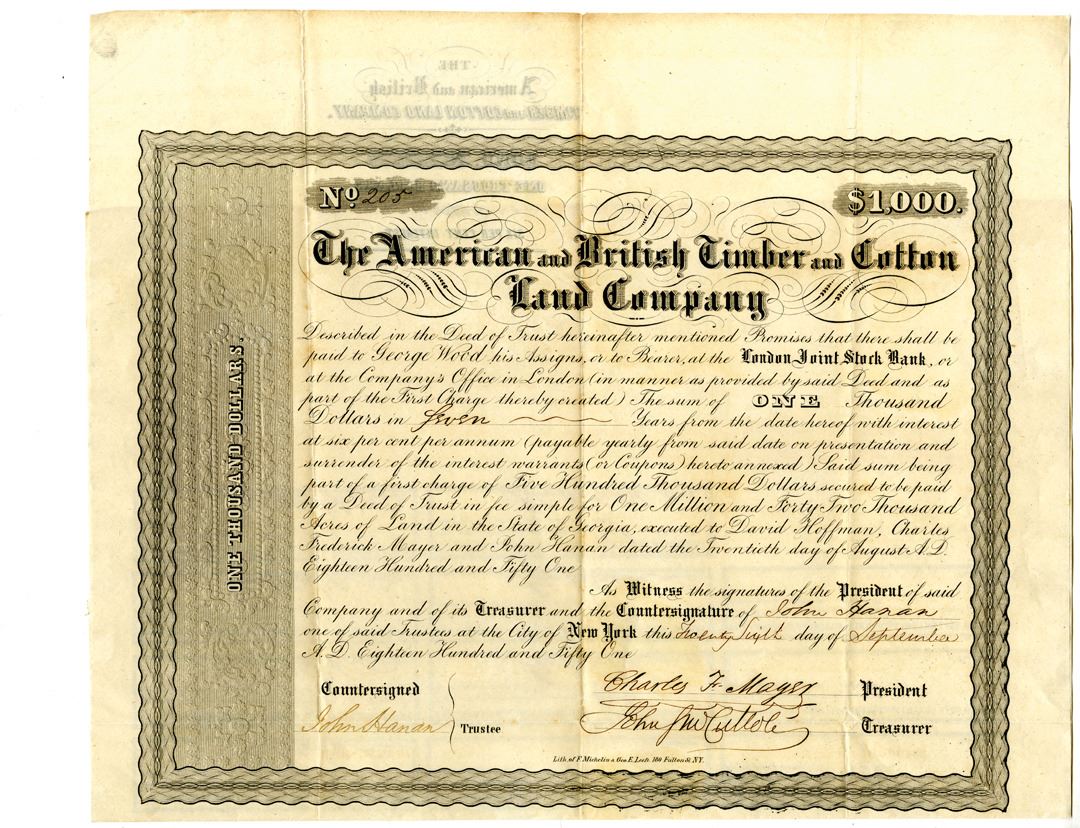 No 205
$1,000.
The American and British Timber and Cotton
Land Company
Described in the Deed of Trust hereinafter mentioned Promises that there shall be
paid to George Wood his Assigns, or to Bearer, at the London Joint Stock Bank, or
at the Company's Office in London (in manner as provided by said Deed and as
part of the First Charge thereby created) The sum of ONE Thousand
Dollars in Seven Years from the date hereof with interest
at six per cent per annum (payable yearly from said date on presentation and
surrender of the interest warrants (or Coupons) hereto annexed) Said sum being
part of a first charge of Five Hundred Thousand Dollars secured to be paid
by a Deed of Trust in fee simple for One Million and Forty Two Thousand
Acres of Land in the State of Georgia, executed to David Hoffman, Charles
Frederick Mayer and John Hanan dated the Twentieth day of August A.D.
Eighteen Hundred and Fifty One
As Witness the signatures of the President of said
Company and of its Treasurer and the Countersignature of John Hanan
one of said Trustees at the City of New York this Twenty Sixth day of September
A.D. Eighteen Hundred and Fifty One
Countersigned
John Hanan Trustee
Charles F. Mayer President
John Treasurer
Lith. of F. Michelin & Geo. E. Leefe 180 Fulton St. N.Y.
ONE THOUSAND DOLLARS.
THE
American and British
TIMBER AND COTTON LAND COMPANY.